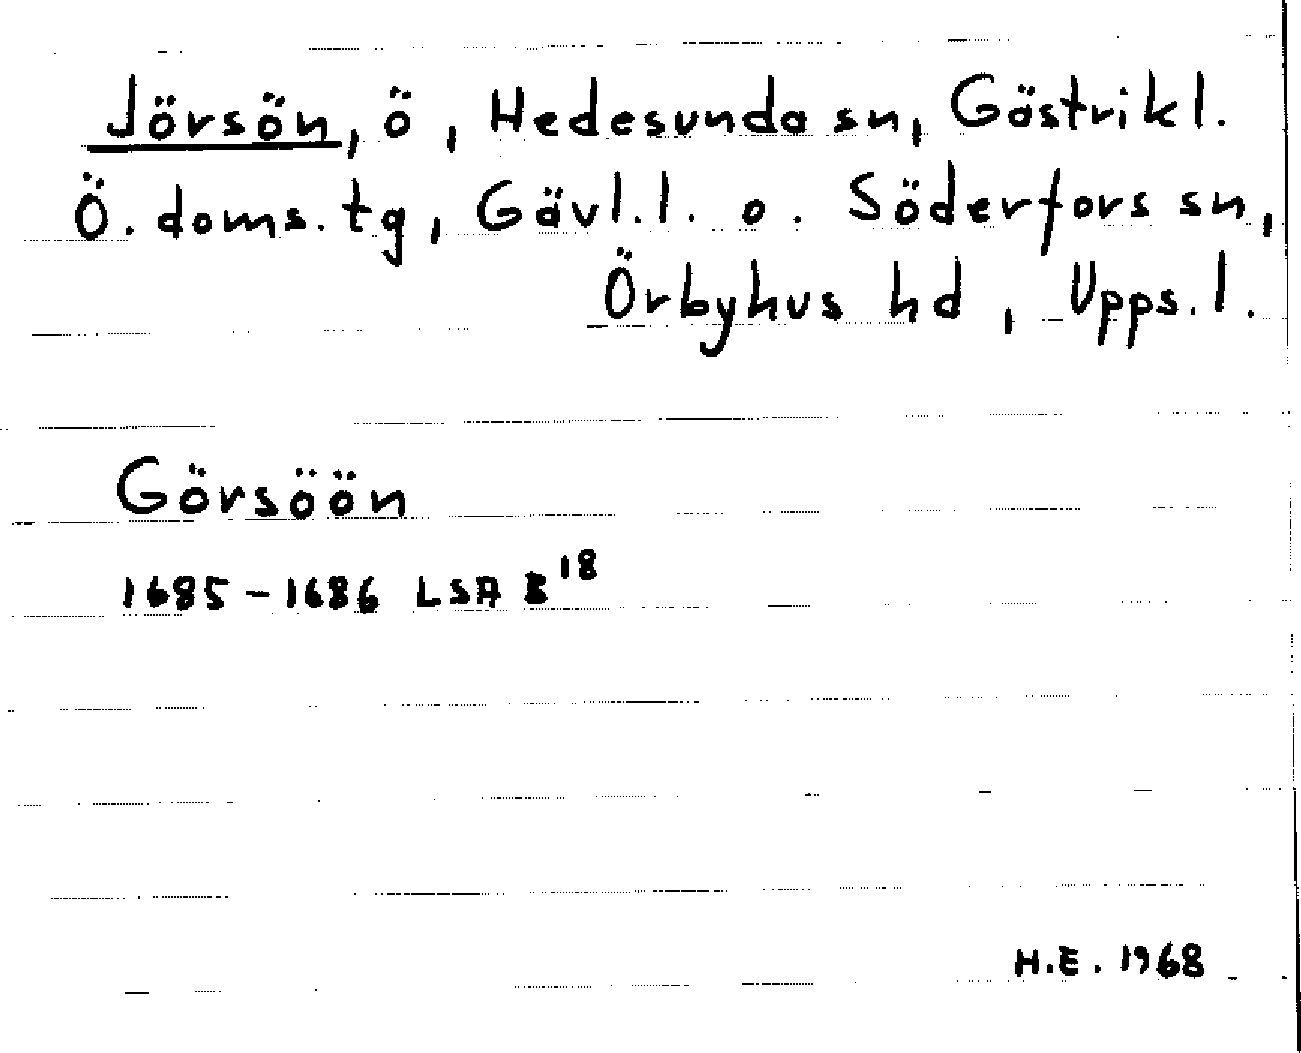 Jörsön, ö, Hedesunda sn, Gästrikl.
Ö. doms. tg, Gävl.l. o. Söderfors sn,
Örbyhus hd, Upps. l.
Görsöön
1685-1686 LSA B 18
H.E. 1968